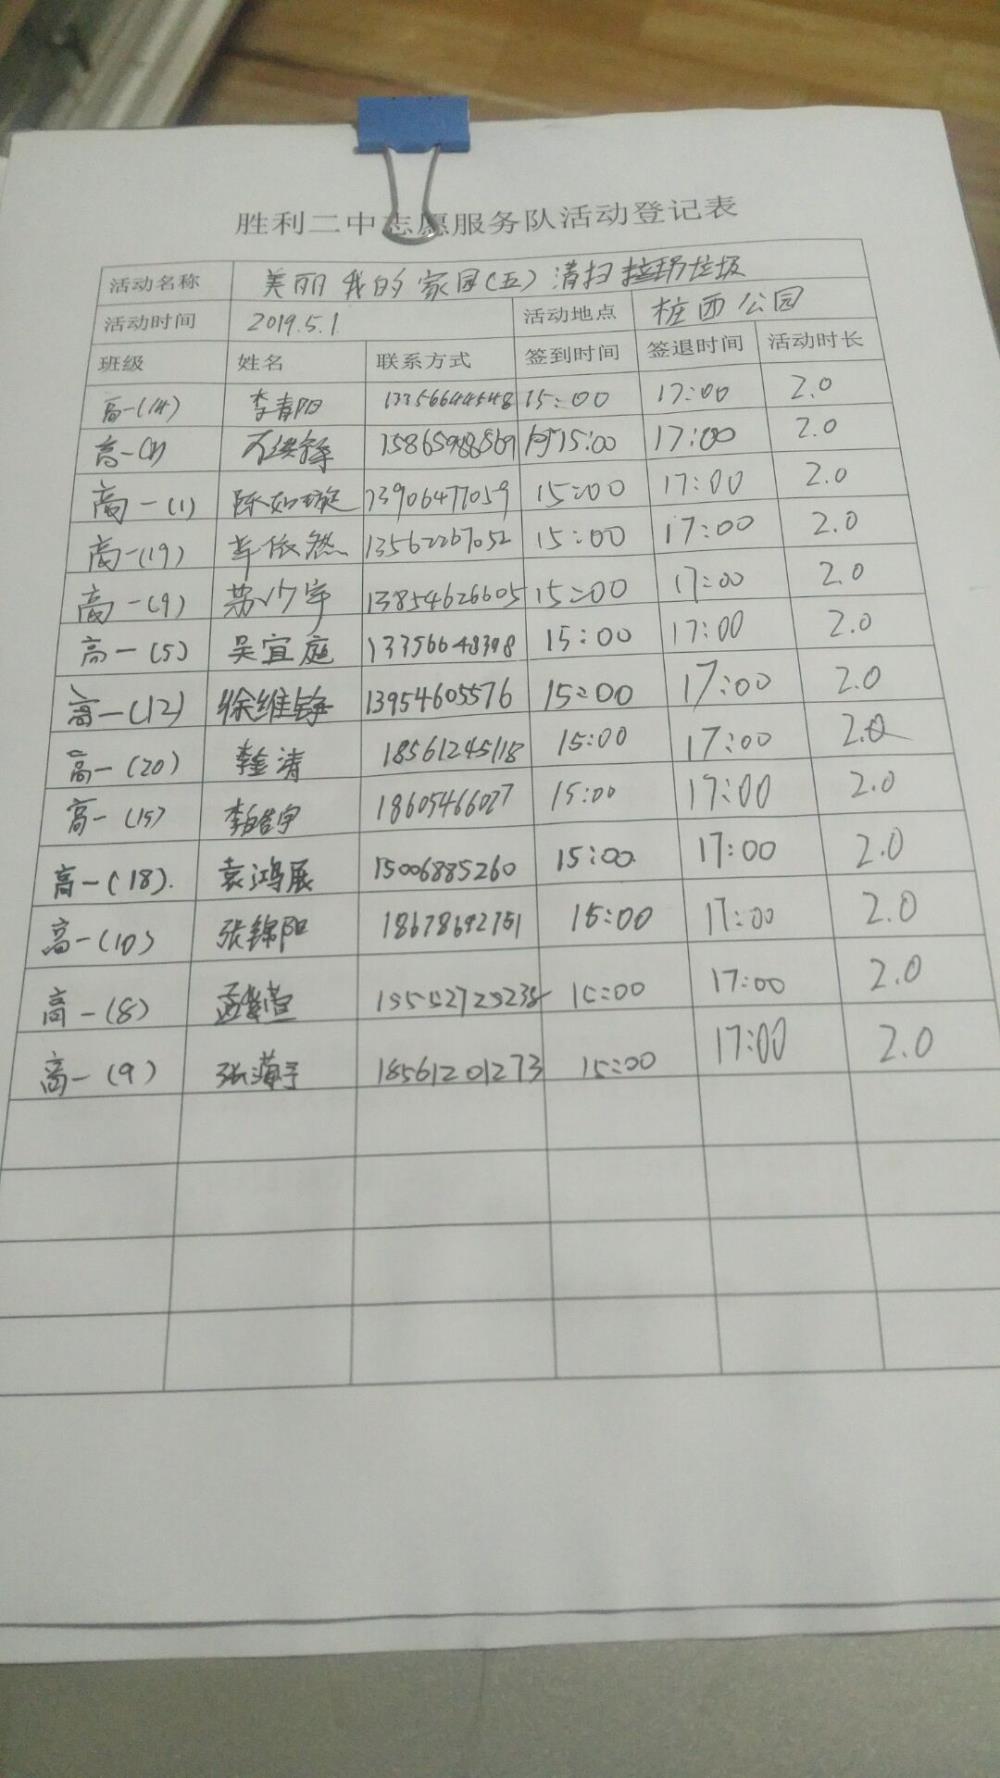 胜利二中志愿服务队活动登记表
活动名称 美丽我的家园(五)清扫垃圾
活动时间 2019.5.1 活动地点 桩西公园
班级 姓名 联系方式 签到时间 签退时间 活动时长
高一(14) 李春阳 13356644548 15:00 17:00 2.0
高一 15865988569 15:00 17:00 2.0
高一(1) 陈如璇 13906477059 15:00 17:00 2.0
高一(19) 依然 13562267052 15:00 17:00 2.0
高一(9) 13854626605 15:00 17:00 2.0
高一(5) 吴宜庭 13356648398 15:00 17:00 2.0
高一(12) 徐维铮 13954605576 15:00 17:00 2.0
高一(20) 清 18561245118 15:00 17:00 2.0
高一(15) 18605466027 15:00 17:00 2.0
高一(18). 袁鸿展 15006885260 15:00 17:00 2.0
高一(10) 张锦阳 18678692751 15:00 17:00 2.0
高一(8) 孟紫萱 15:00 17:00 2.0
高一(9) 18561201273 15:00 17:00 2.0